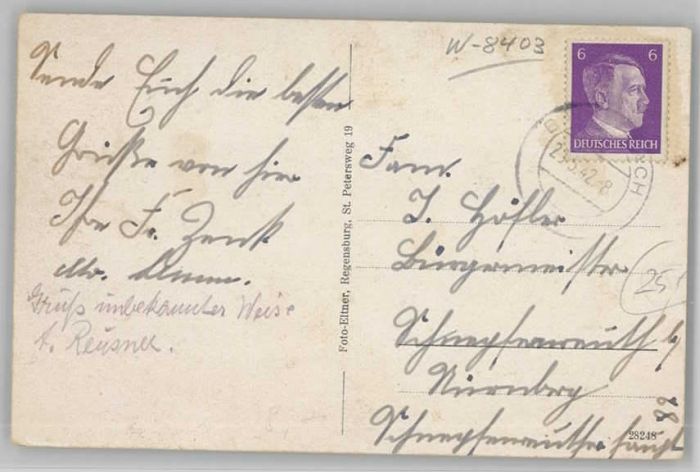 Sende Euch die besten
Grüße von hier
Ihr Fr. Zenk
Gruß unbekannter Weise
Reusner.
Foto-Eltner, Regensburg, St. Petersweg 19
W-8403
6 6
DEUTSCHES REICH
Fam.
J. Höfler
Bürgermeister
Schnepfenreuth b/
Nürnberg
Schnepfenreuther Haupt
28248